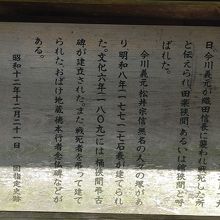 日、今川義元が織田信長に襲われ戦死した所
と伝えられ田楽狭間あるいは館狭間と呼
ばれた。
今川義元、松井宗信、無名の人々の塚があ
り明和八年(一七七一)七石表が建てられ
た。文化六年(一八〇九)には桶狭間弔古
碑が建立された。また戦死者を弔って建て
られた、おばけ地蔵徳本行者念仏碑などが
ある。
昭和十二年十二月二十一日
指定史跡